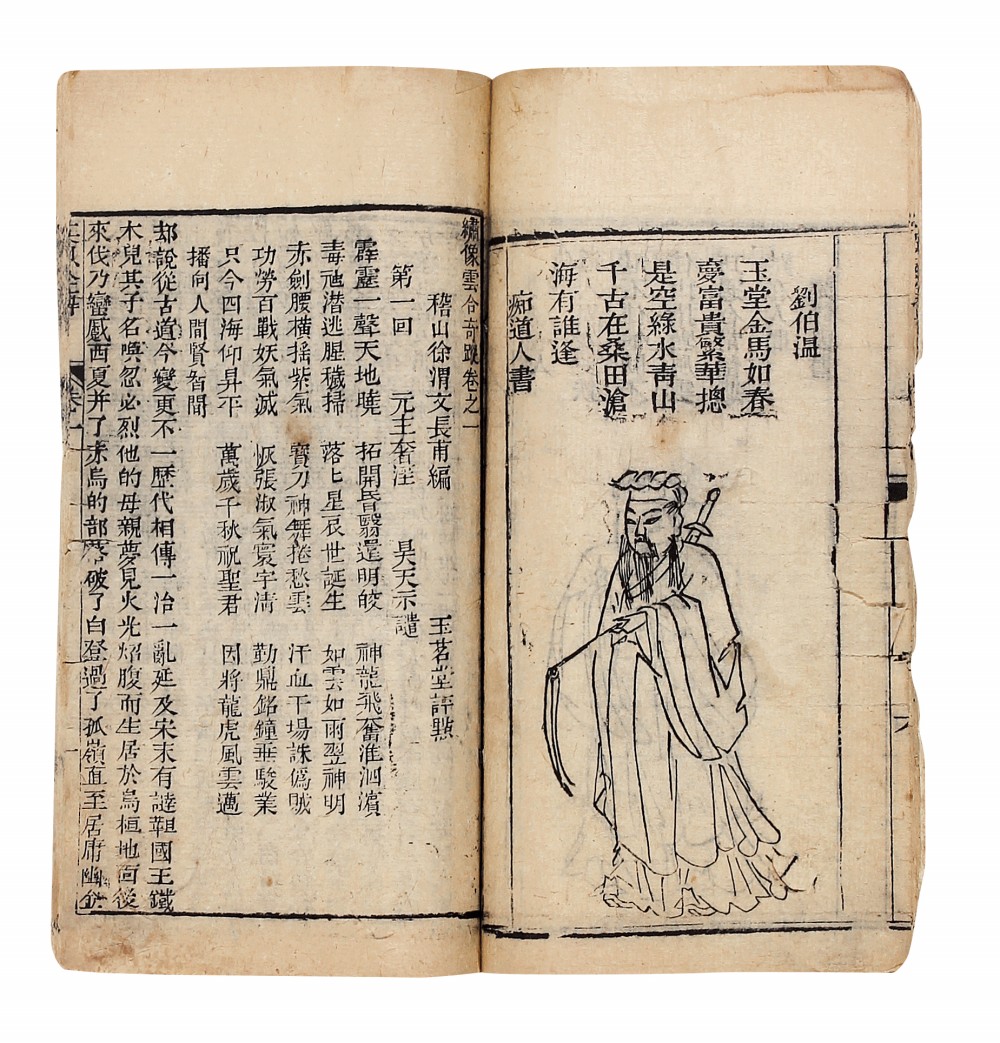 劉伯温
玉堂金馬如春
夢富貴繁華摠
是空綠水靑山
千古在桑田滄
海有誰逢
痴道人書
繡像雲合奇蹤卷之一
稽山徐渭文長甫編 玉茗堂評點
第一回 元主奢淫 昊天示譴
霹靂一聲天地曉 拓開昏翳還明皎 神龍飛奮淮泗濱
毒虺潜逃腥穢掃 落七星辰世誕生 如雲如雨翌神明
赤劍腰橫搖紫氣 寶刀神舞捲愁雲 汗血干場誅僞賊
功勞百戰妖氣滅 恢張淑氣寰宇清 勤鼎銘鐘垂駿業
只今四海仰昇平 萬歲千秋祝聖君 因將龍虎風雲邁
播向人間賢智聞
却說從古道今變更不一歷代相傳一治一亂延及宋末有韃靼國王鐵
木兒其子名喚忽必烈他的母親夢見火光炤腹而生居於烏桓地面後
來伐乃蠻威西夏并了赤烏的部落破了白登過了孤嶺直至居庸幽